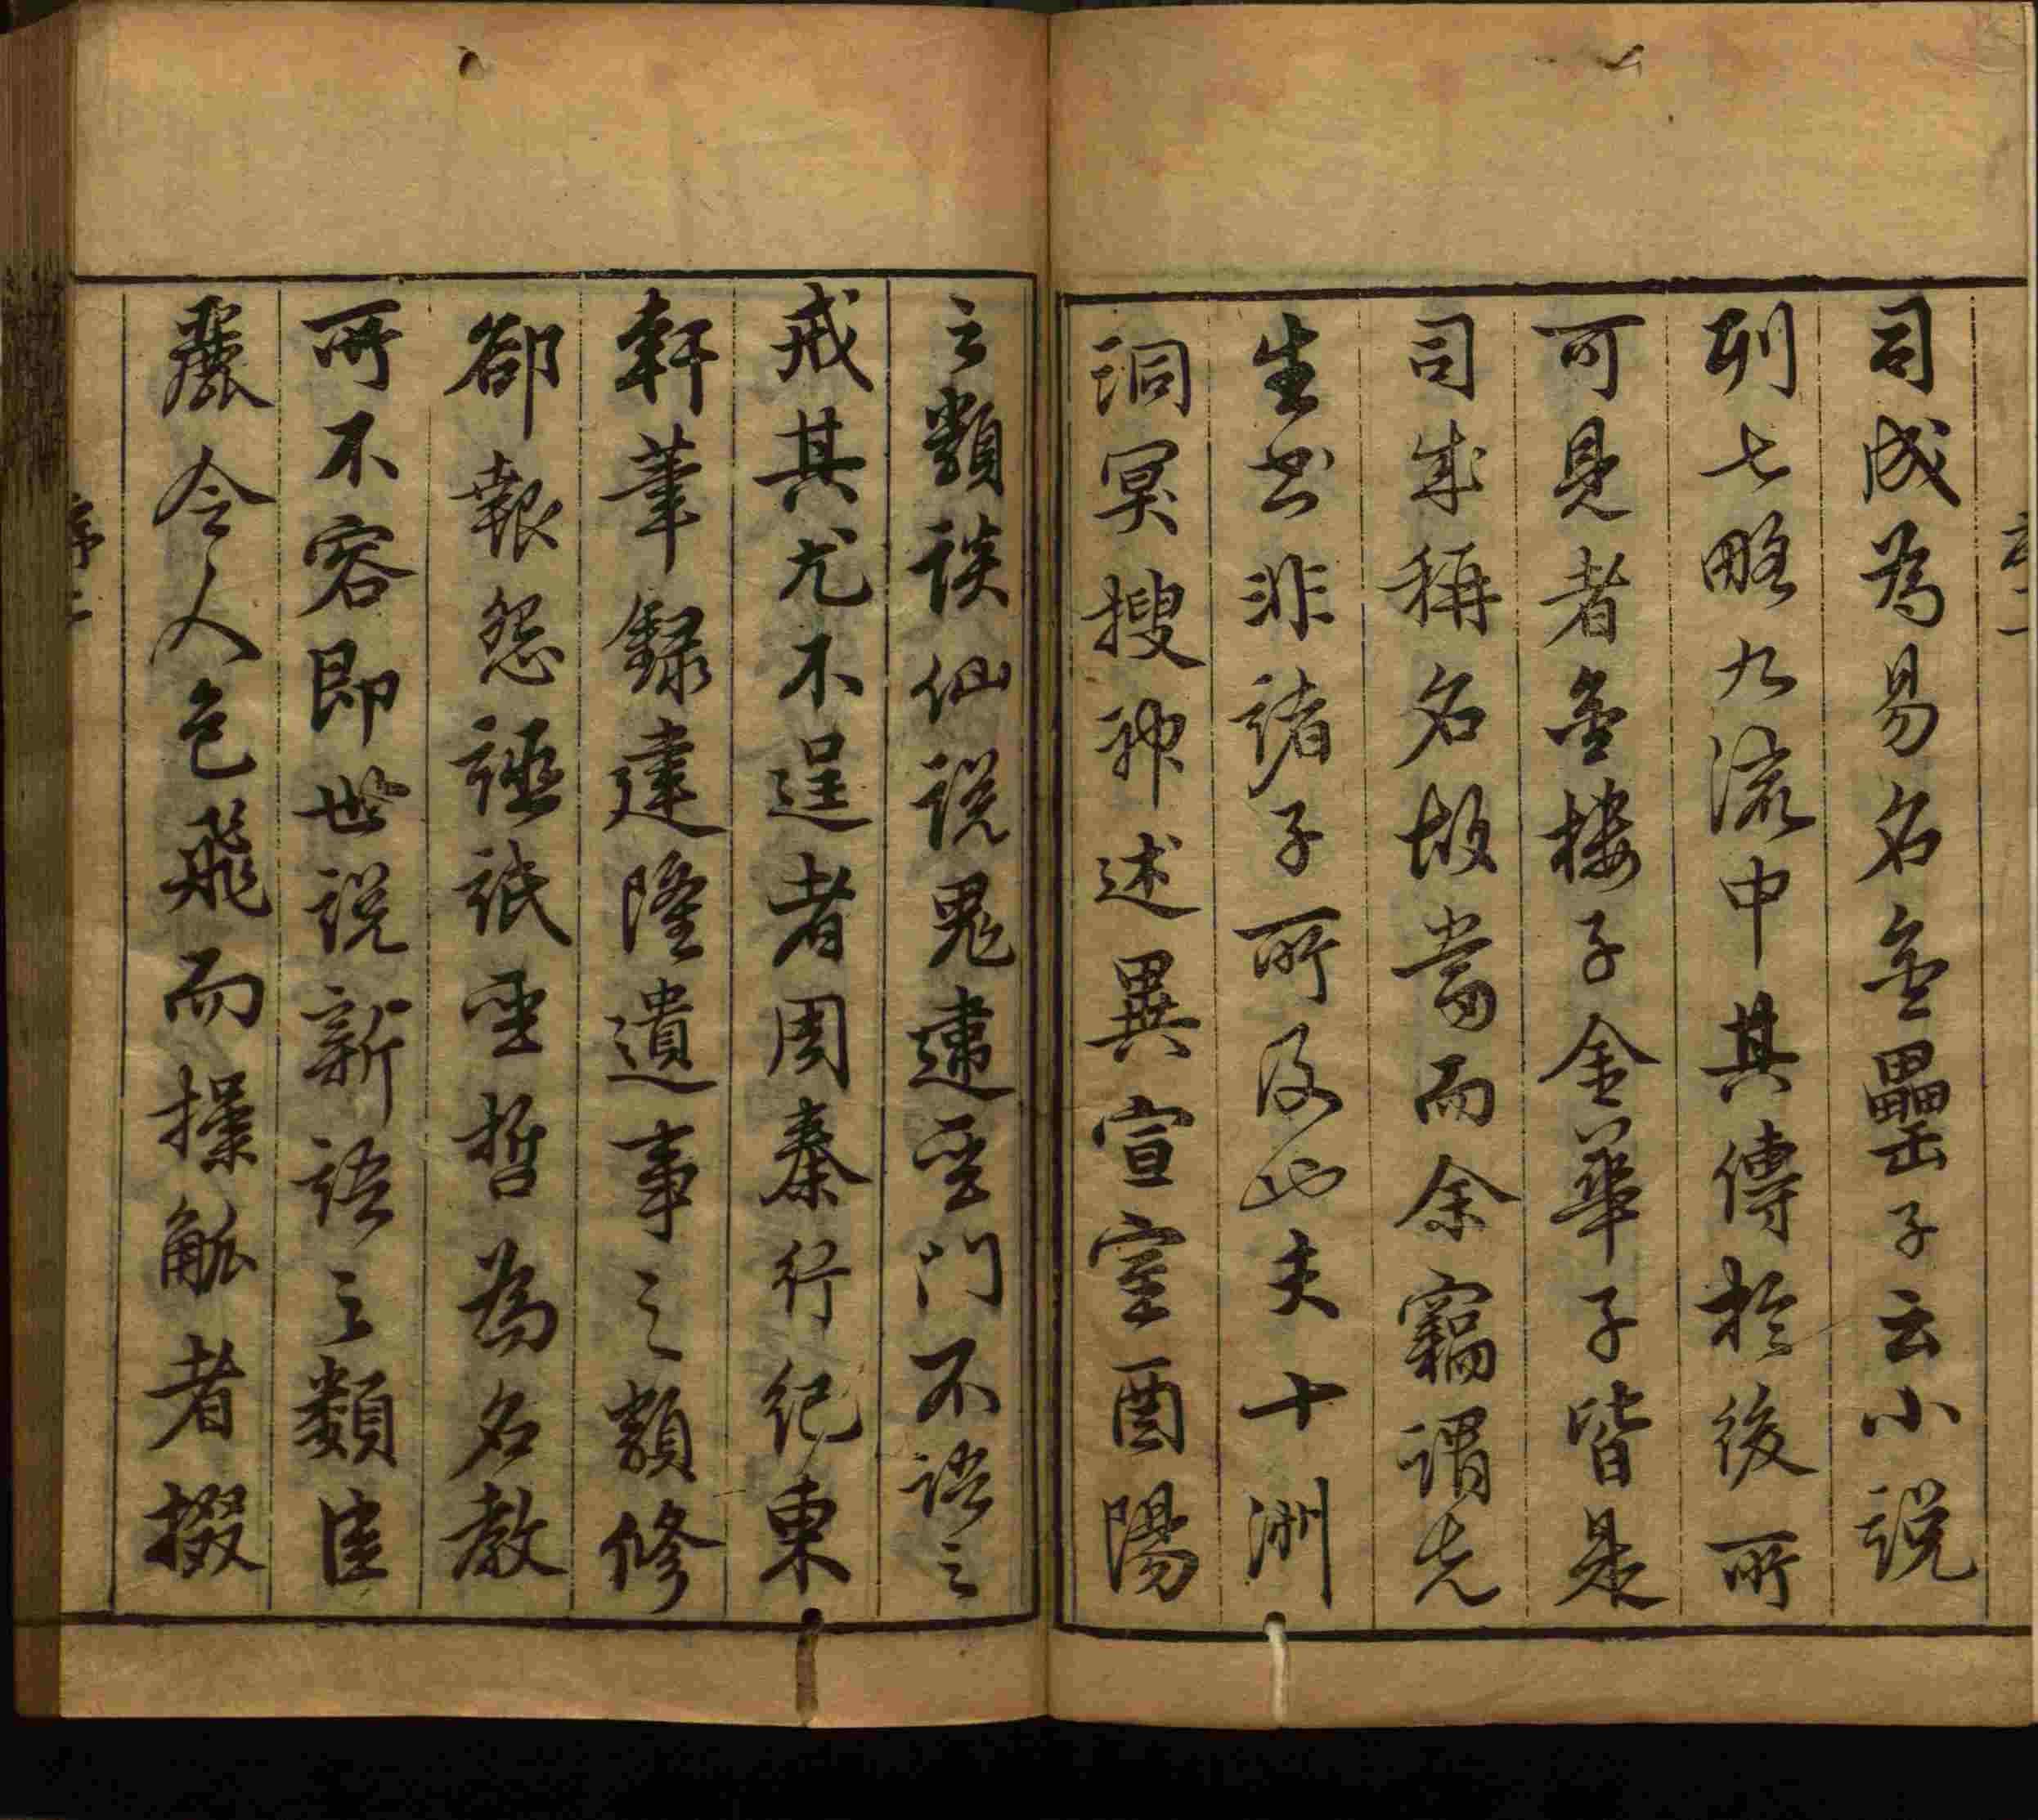 司成為易名金罍子云小說
列七略九流中其傳於後所
可見者金樓子金華子皆是
司成稱名故當而余竊謂先
生書非諸子所及此夫十洲
洞冥搜神述異宣室酉陽
之類談仙說鬼違聖門不語之
戒其尤不逞者周秦行紀東
軒筆錄建隆遺事之類修
郤報怨誣詆聖哲為名教
所不容即世說新語之類佳
麗令人色飛而操觚者掇
序二